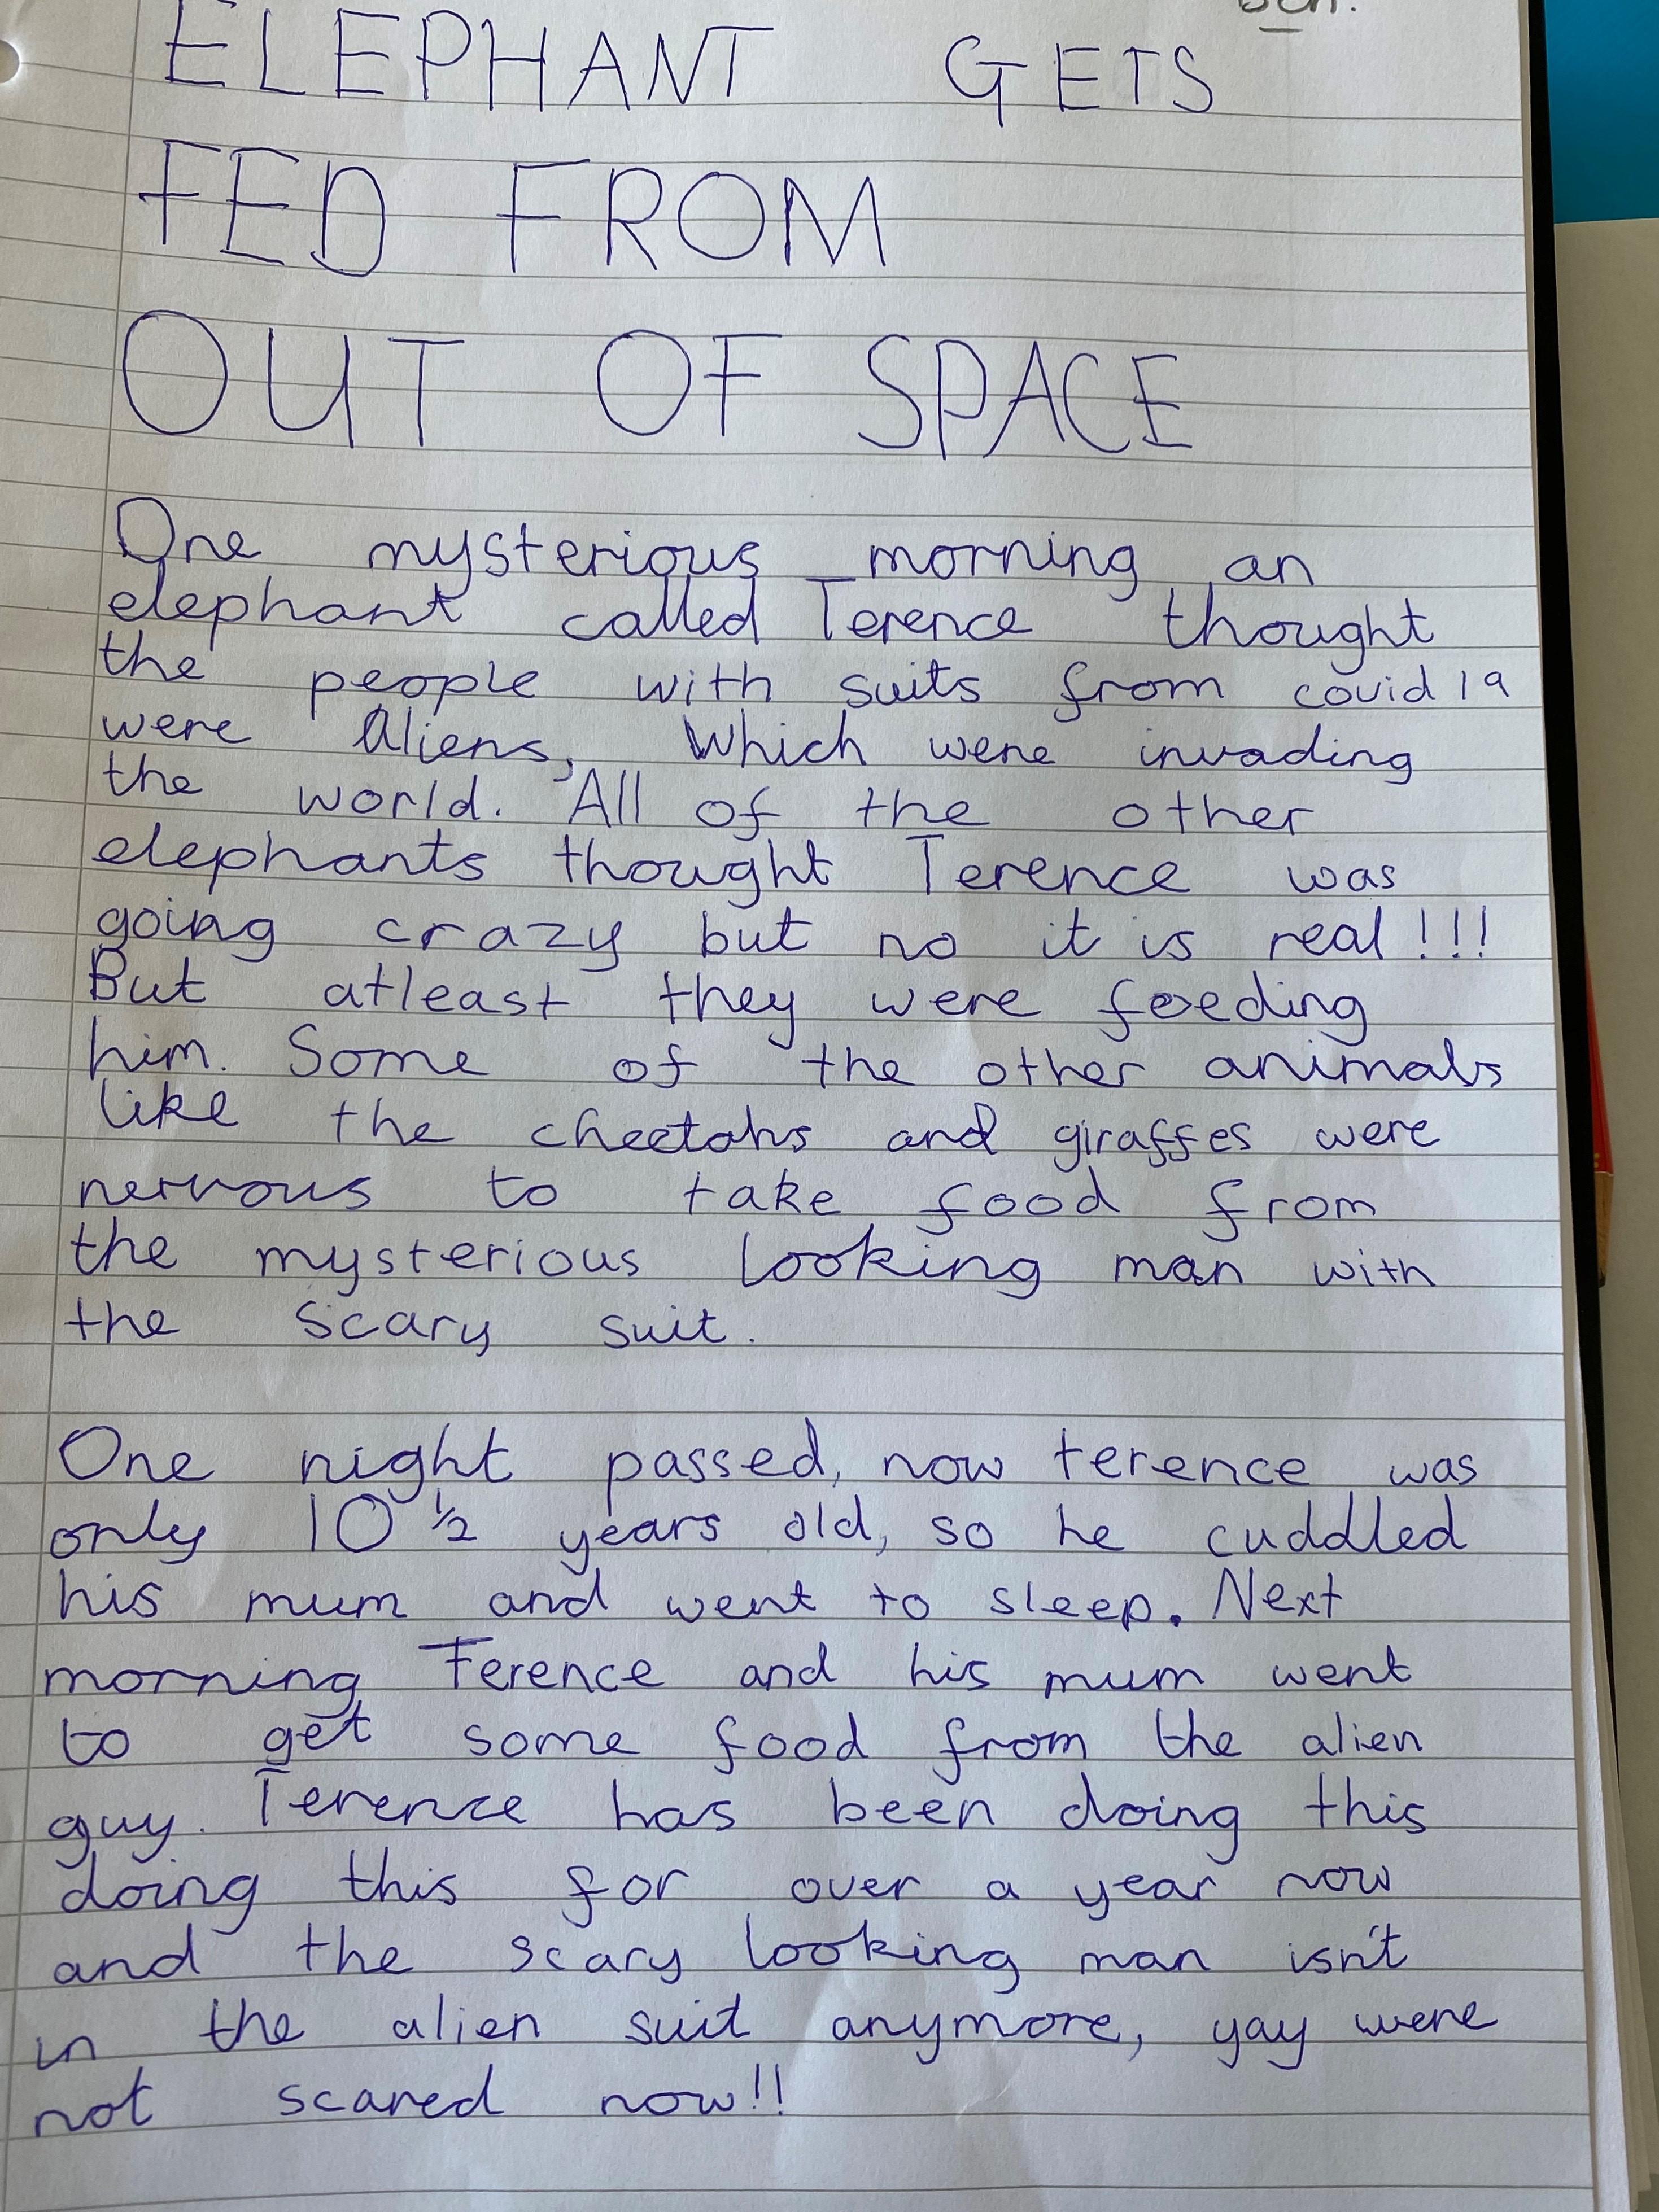 ELEPHANT GETS
FED FROM
OUT OF SPACE
One mysterious morning an
elephant called Terence thought
the people with suits from covid 19
were Aliens, Which were invading
the world. All of the other
elephants thought Terence was
going crazy but no it is real!!!
But atleast they were feeding
him. Some of the other animals
like the cheetahs and giraffes were
nervous to take food from
the mysterious looking man with
the scary suit.
One night passed, now terence was
only 10 1/2 years old, so he cuddled
his mum and went to sleep. Next
morning Terence and his mum went
to get some food from the alien
guy. Terence has been doing this
doing this for over a year now
and the scary looking man isn't
in the alien suit anymore, yay were
not scared now!!